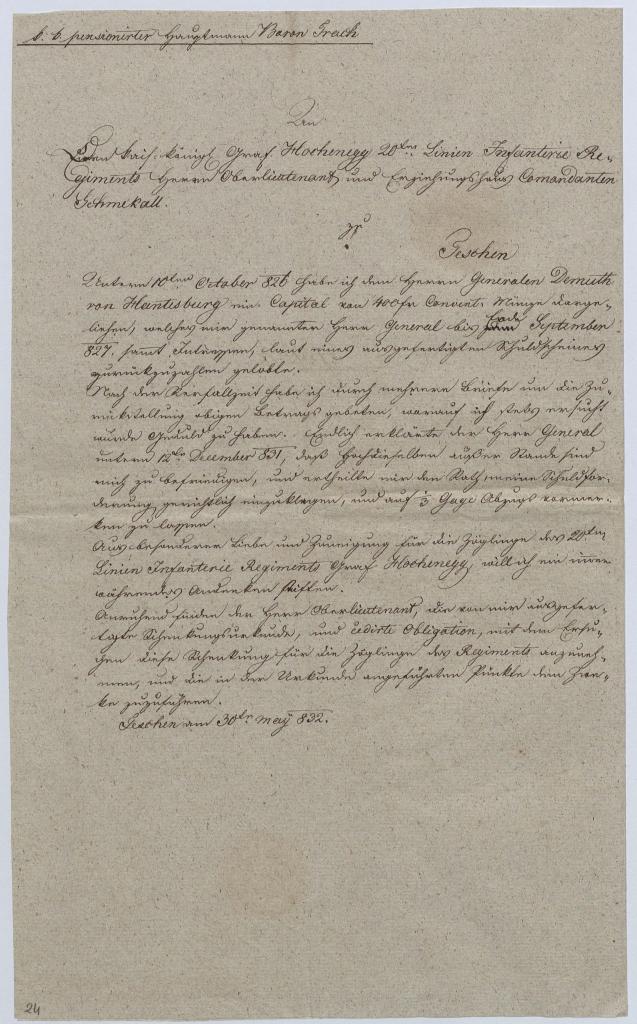 k: k: pensionirter Hauptmann Baron Trach
An
Den kais. königl. Graf Hochenegg 20ten Linien Infanterie Re-
giments Herrn Oberlieutenant, und Erziehungshaus Comandanten
Schmekall.
zu
Teschen
Unterm 10ten October 826 habe ich dem Herrn Generalen Demuth
von Hantesburg ein Capital von 400 fr Convent. Münze darge-
liehen, welches mir genannter Herr General bis Ende September
827, samt Intressen, laut eines ausgefertigten Schuldscheines
zurückzuzahlen gelobte.
Nach der Verfallzeit habe ich durch mehrere Briefe um die Zu-
rückstellung obigen Betrags gebeten, worauf ich stets ersucht
wurde Geduld zu haben. Endlich erklärte der Herr General
unterm 12ten December 831, daß Hochdieselben außer Stande sind
mich zu befriedigen, und ertheilte mir den Rath, meine Schuldfor-
derung gerichtlich einzuklagen, und auf 1/3 Gage Abzugs vormer-
ken zu lassen.
Aus besonderer Liebe und Zuneigung für die Zöglinge des 20ten
Linien Infanterie Regiments Graf Hochenegg, will ich ein immer-
währendes Andenken stiften.
Anruhend finden der Herr Oberlieutenant, die von mir ausgefer-
tigte Schenkungsurkunde, und cedirte Obligation, mit dem Ersu-
chen diese Schenkung für die Zöglinge des Regiments anzuneh-
men, und die in der Urkunde angeführten Punkte dem Zwe-
ke zuzuführen.
Teschen am 30ten May 832.
24